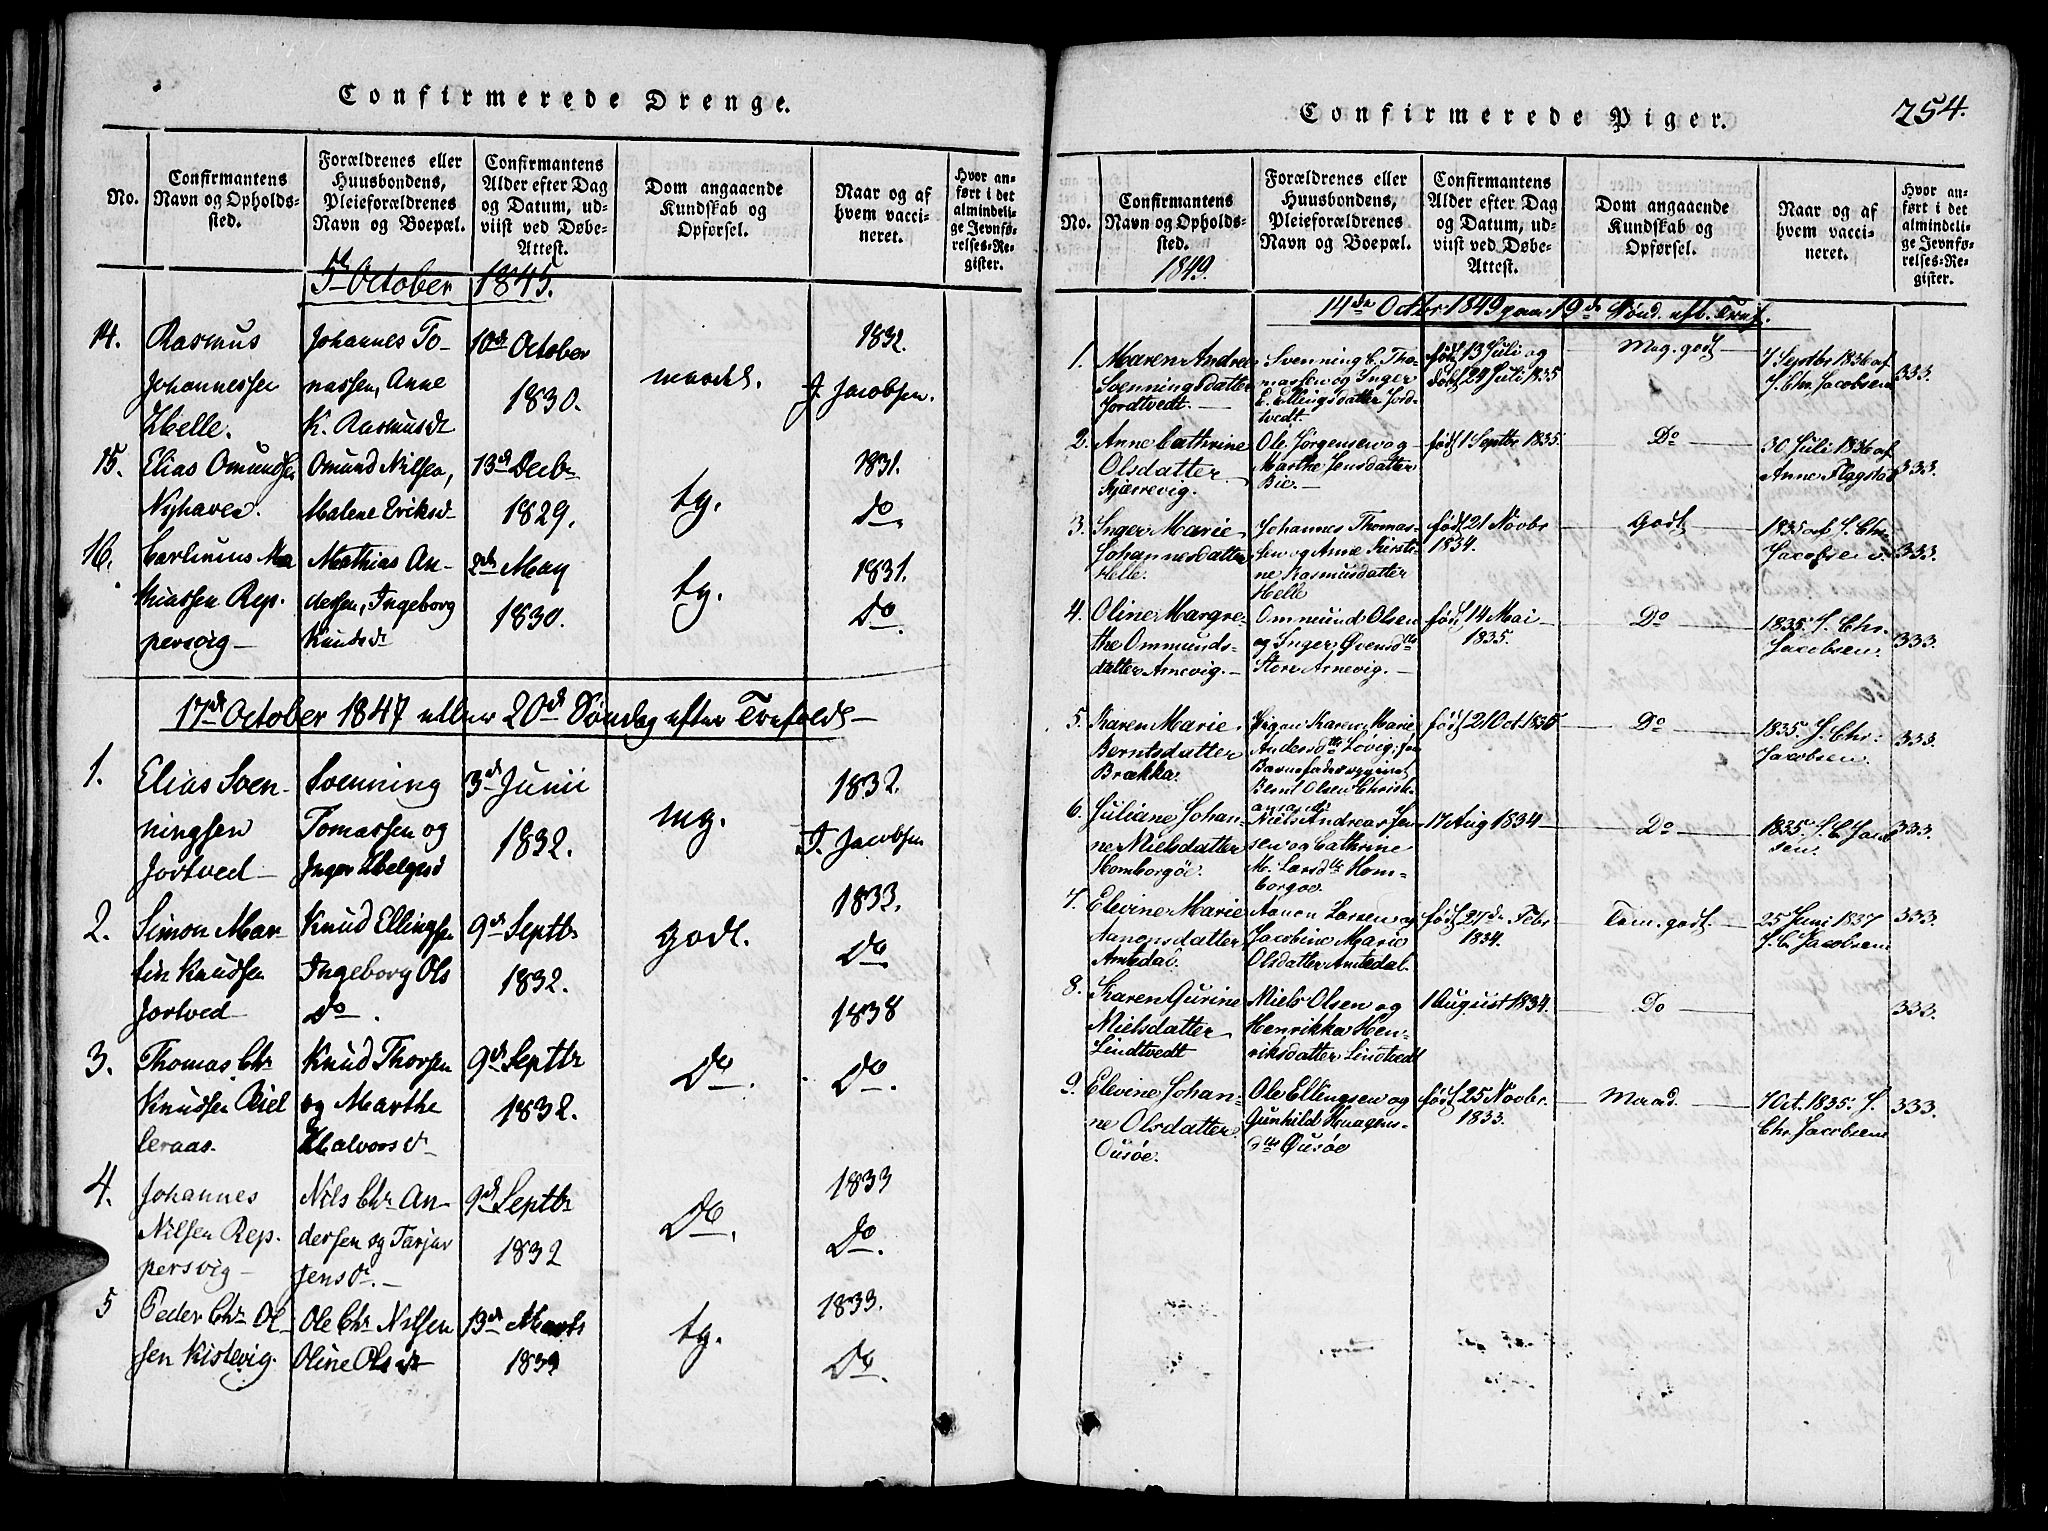 Confirmerede Drenge.
No.
Confirmantens
Navn og Opholds-
sted.
Forældrenes eller
Huusbondens,
Pleieforældrenes
Navn og Boepæl.
Confirmantens
Alder efter Dag
og Datum, ud-
viist ved Døbe-
Attest.
Dom angaaende
Kundskab og
Opførsel.
Naar og af
hvem vacci-
neret.
Hvor an-
ført i det
almindeli-
ge Jevnfø-
relses-Re-
gister.
5t October 1845.
14. Rasmus
Johannessen
Helle.
Johannes To-
nassen, Anne
K. Rasmusdt
10de October
1830.
maadl.
1832.
J. Jacobsen.
15. Elias Omundsen
Nyhaven.
Omund Nilsen,
Malene Eriksd
13de Decbr
1829.
tg.
1831.
Do.
16. Carlinius Ma
thiassen Rep-
persvig
Mathias An-
dersen, Ingeborg
Knudsdt
2de May
1830.
tg.
1831.
Do.
17de October 1847 eller 20de Søndag efter Trefoldt
1. Elias Sven-
ningsen
Jortved
Svenning
Tomassen og
Inger
3de Junii
1832.
mg.
1832.
J. Jacobsen
2. Simon Mar-
tin Knudsen
Jortved
Knud Ellingsen
Ingeborg Ols
do.
9de Septbr
1832.
godt.
1833.
Do
3. Thomas Chr
Knudsen Biel
leraas.
Knud Thorsen
og Marthe
Halvorsdt
9de Septbr
1832.
Do.
1838
Do.
4. Johannes
Nilsen Rep-
persvig
Nils Chr An-
dersen og Tarjer
Jensdt.
9de Septbr
1832
Do.
1833
Do.
5 Peder Chr Ol-
sen Kistevig.
Ole Chr Nilsen
Oline Olsdt
13de Marts
tg.
1833.
Do.
Confirmerede Piger.
254.
No.
Confirmantens
Navn og Opholds-
sted.
1849.
Forældrenes eller
Huusbondens,
Pleieforældrenes
Navn og Boepæl.
Confirmantens
Alder efter Dag
og Datum, ud-
viist ved Døbe-
Attest.
Dom angaaende
Kundskab og
Opførsel.
Naar og af
hvem vacci-
neret.
Hvor an-
ført i det
almindeli-
ge Jevnfø-
relses-Re-
gister.
14de Octbr 1849 19de Sønd. eft. Tref.
1. Maren Andrea
Svenningsdatter
Jordtvedt.
Svenning C. Tho-
massen og Inger
E. Ellingsdatter Jord-
tvedt.
født 13 Juli og
døbt 24 Juli 1835
Meg. godt
7 Septbr 1836 af
J. Chr. Jacobsen
333.
2. Anne Cathrine
Olsdatter
Kjærrevig.
Ole Jørgensen og
Marthe Jensdatter
Bie.
født 1 Septbr 1835.
Do
30 Juli 1836 af
Anne Flagstad
333.
3. Inger Marie
Johannesdatter
Helle.
Johannes Thomas-
sen og Anne Kirsti-
ne Rasmusdatter
Helle
født 21 Novbr
1834.
Godt
1835 af J. Chr.
Jacobsen
333.
4. Oline Margre-
the Ommunds-
datter Arnevig.
Ommund Olsen
og Inger Øvensdtts
Store Arnevig.
født 14 Mai
1835.
Do
1835. J. Chr.
Jacobsen.
333.
5. Karen Marie
Berntsdatter
Brække.
Pigen Karen Marie
Andersdtts Løvig; for
Barnefader opgivet
Bernt Olsen Christi-
ansand
født 2 Oct. 1835
Do
1835. J. Chr.
Jacobsen.
333.
6. Juliane Johan-
ne Nielsdatter
Homborgøe.
Niels Andreas Jen
sen og Cathrine
M. Larsdtts Hom-
borgøe.
17 Aug 1834
Do
1835. J. C. Jacob
sen.
333.
7. Elevine Marie
Aanonsdatter
Amtedal.
Aanon Larsen og
Jacobine Marie
Olsdatter Amtedal.
født 27de Febr
1834.
Tem. godt.
25 Juni 1837
J. C. Jacobsen
333.
8. Karen Gurine
Nielsdatter
Lindtvedt
Niels Olsen og
Henrikka Hen-
riksdatter Lindtvedt
1 August 1834.
Do
333.
9. Elevine Johan-
ne Olsdatter
Ousøe.
Ole Ellingsen og
Gunhild Haagens-
dtts Ousøe
født 25 Novbr.
1833.
Maad.
7 Oct. 1835. J.
Chr. Jacobsen
333.